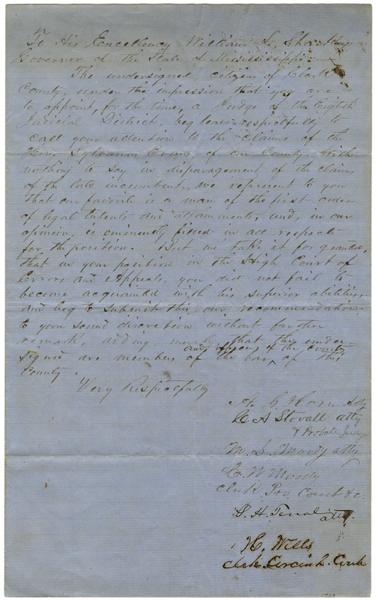 To His Excellency William L. Sharkey
Governor of the State of Mississippi:
The undersigned, citizens of Clark
County, under the impression that you are
to appoint, for the time, a Judge of the Eighth
Judicial District, beg leave respectfully to
call your attention to the claims of the
Hon. Sylvanus Evans, of our County. With
nothing to say in disparagement of the claims
of the late incumbent, we represent to you
that our favorite is a man of the first order
of legal talents and attainments, and, in our
opinion, is eminently fitted in all respects
for the position. But we take it for granted,
that in your position in the High Court of
Errors and Appeals, you did not fail to
become acquainted with his superior abilities
and beg to submit this, our recommendation
to your sound discretion without further
remark, adding merely that the under
signed are members of the bar, and officers of the court of this
County.
Very Respectfully
Atty
C A Stovall atty
& Probate Judge
M. S. Moody atty
C. W Moody
Clerk Pro. Court &c.
S. H. Terral atty.
H. Wells
Clerk Circuit Court